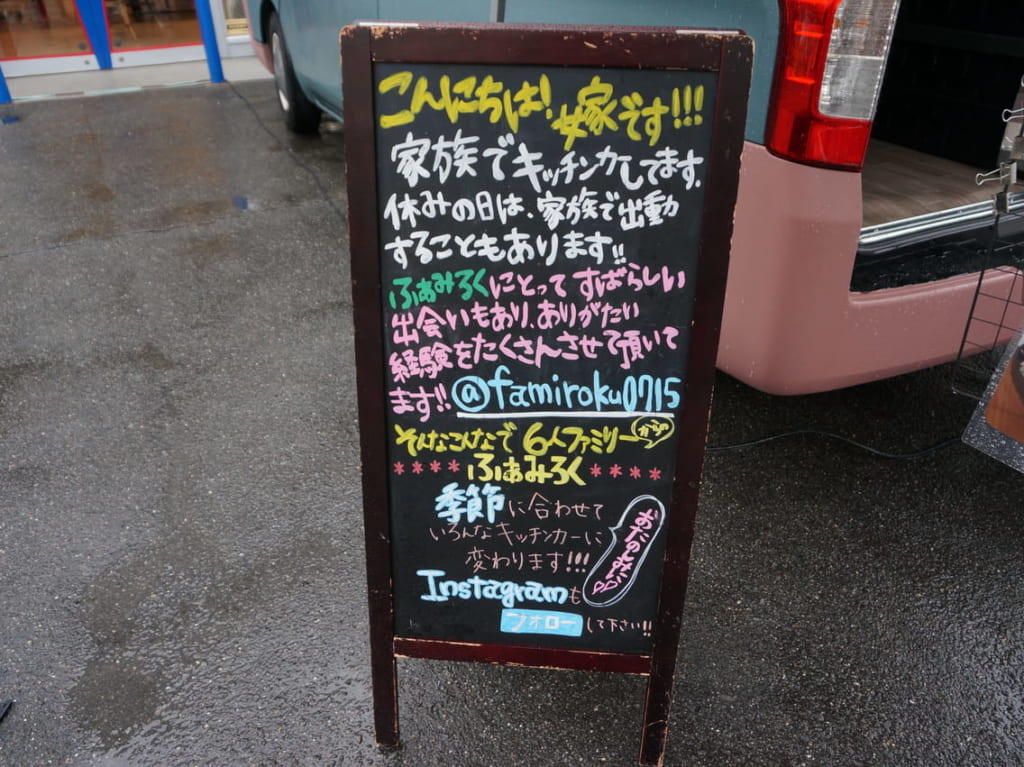 こんにちは!女家です!!!
家族でキッチンカしてます。
休みの日は、家族で出動
することもあります!!
ふぁみろくにとってすばらしい
出会いもあり、ありがたい
経験をたくさんさせて頂いて
ます!! @famiroku0715
そんなこんなで6人ファミリー からの
****ふぁみろく****
季節に合わせて
いろんなキッチンカーに
変わります!!!
おたのしみに♡♡
Instagramも
フォローして下さい!!